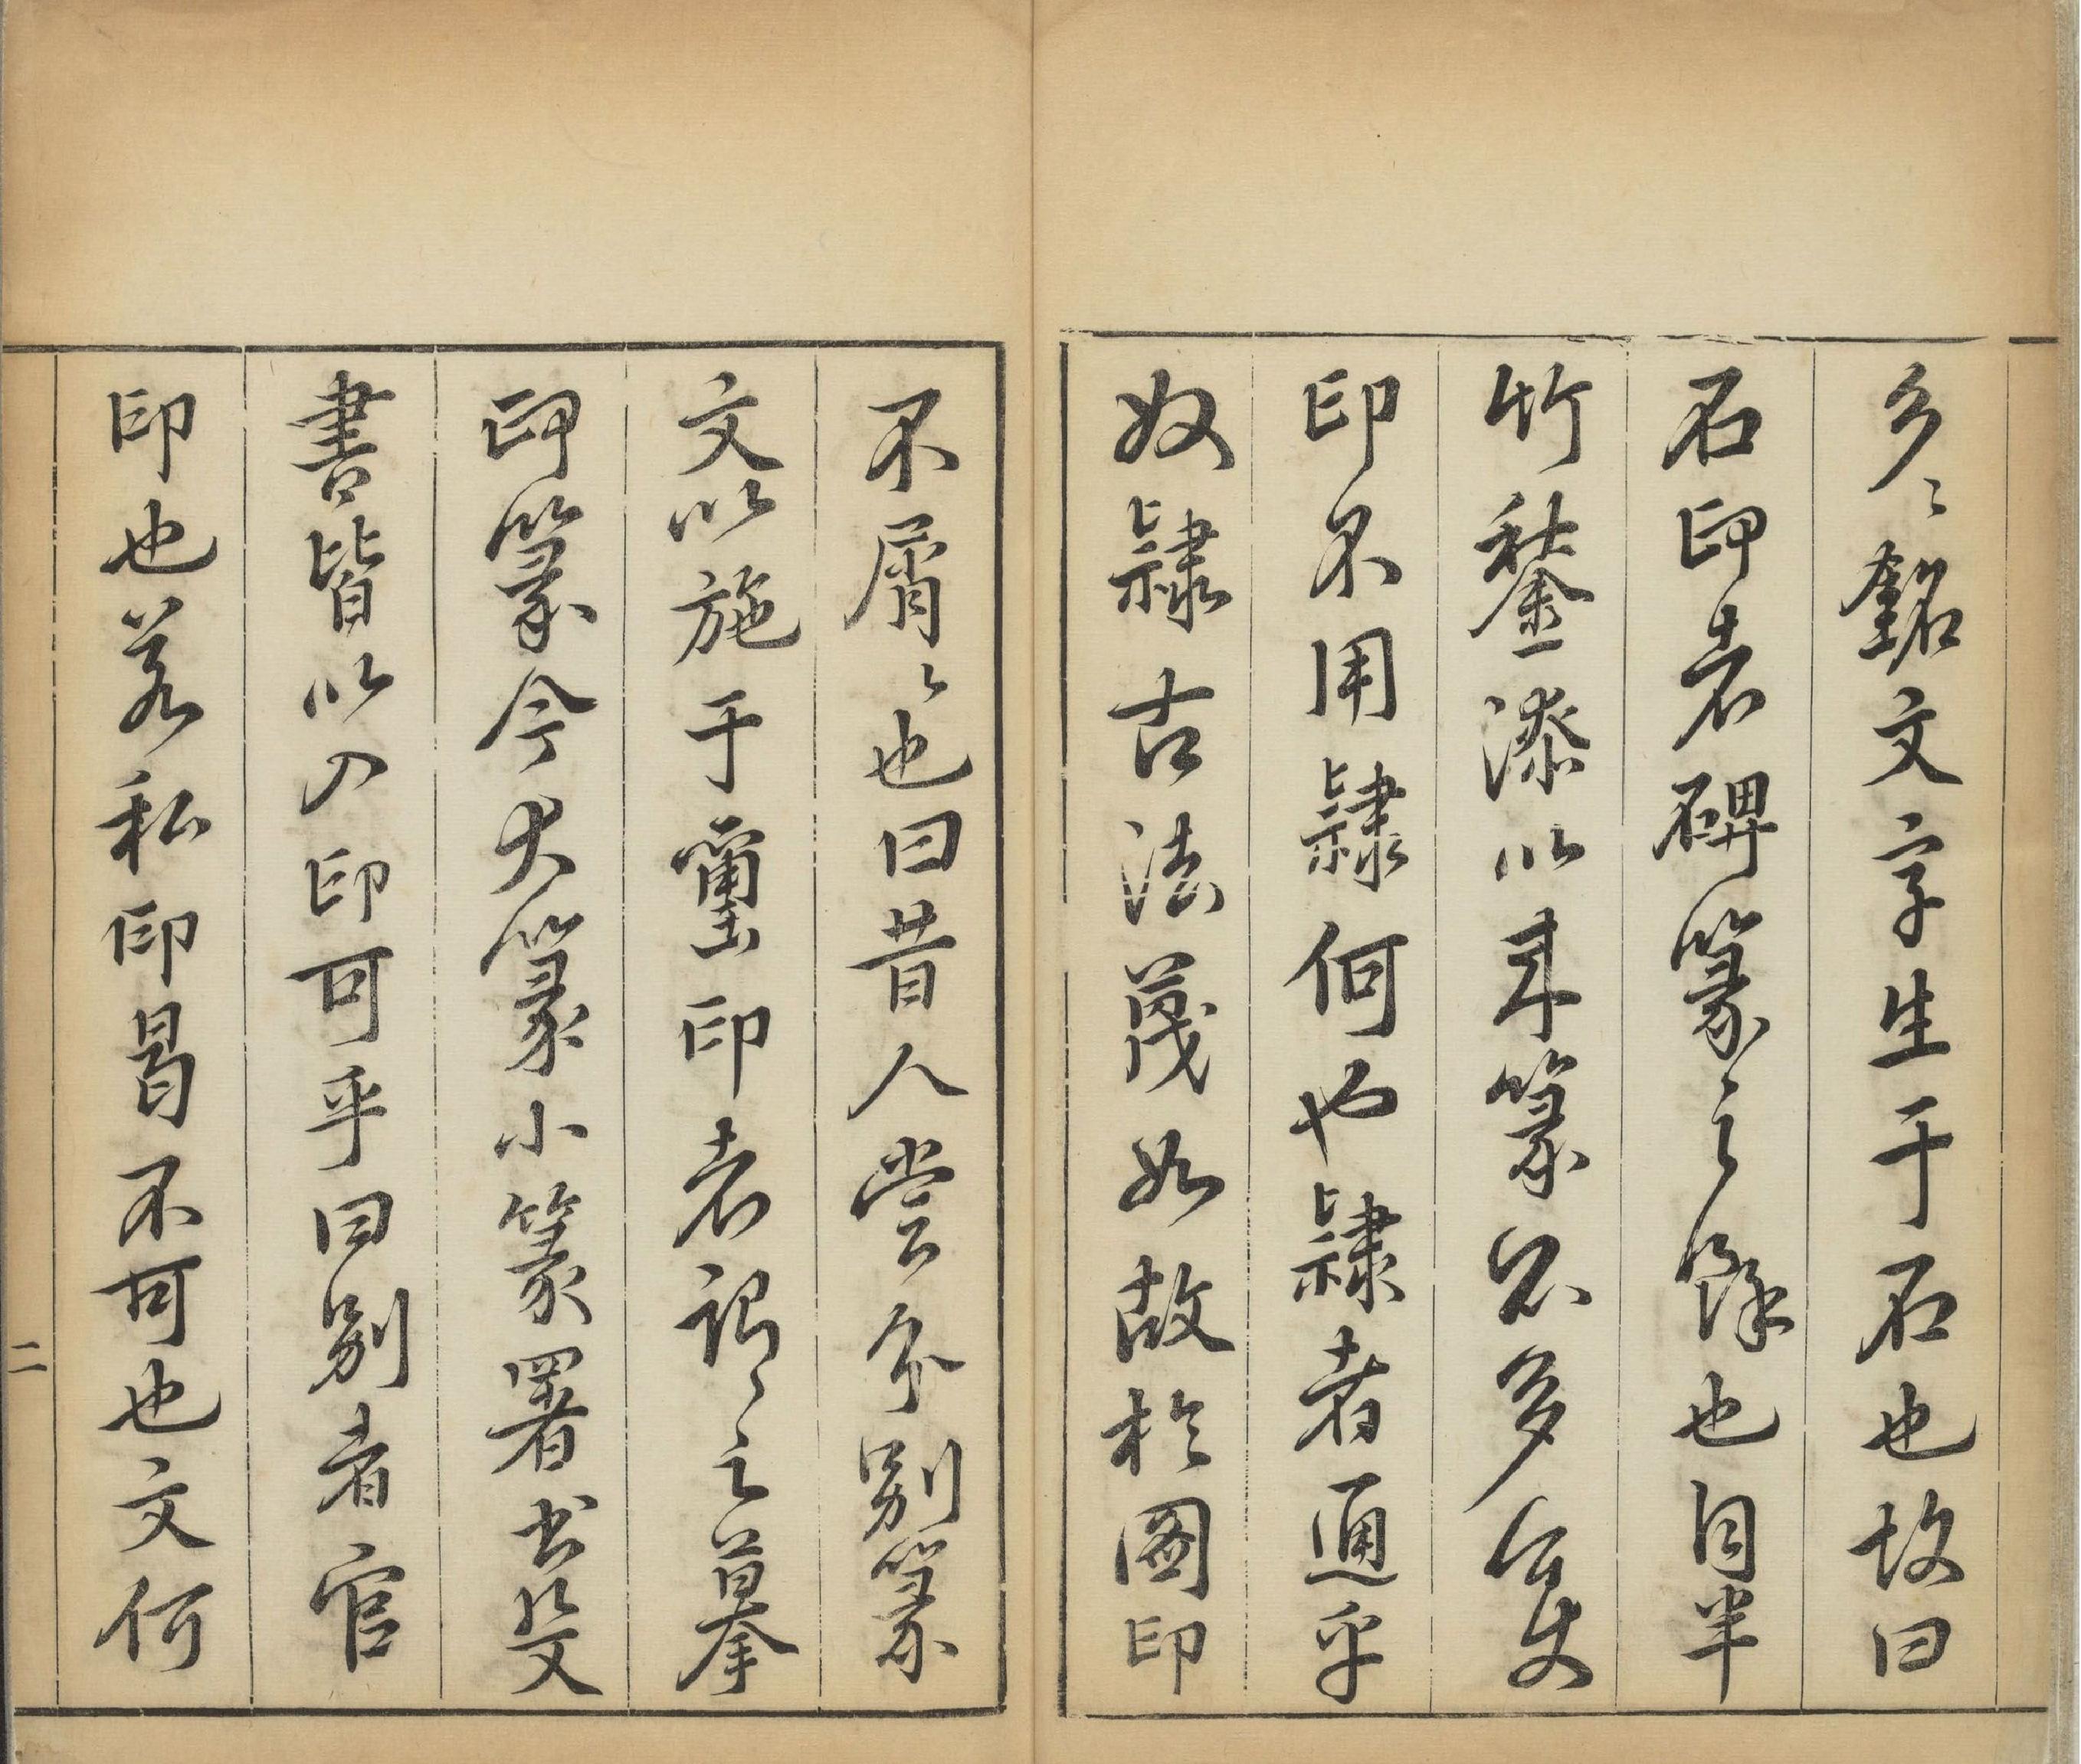 多〻銘文字生于石也故曰
石印者碑篆之餘也自半
竹漆以來篆多
印不用隸何也隸者通乎
奴隸古法蔑如故於圖印
不屑〻也曰昔人嘗分別篆
文以施于璽印者謂之摹
印篆今大篆小篆署書殳
書皆以入印可乎曰別者官
印也若私印曷不可也文何
二